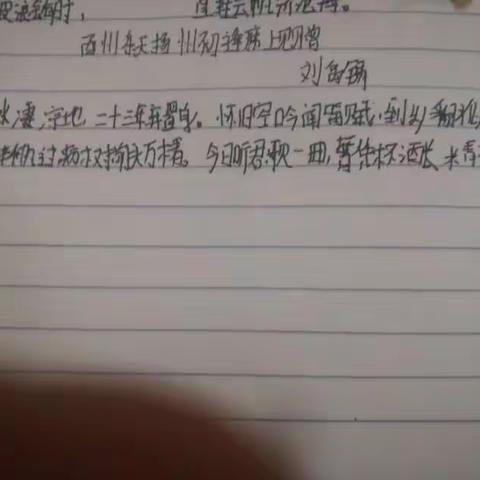 破浪会有时， 直挂云帆济沧海。
酉州乐天扬州初逢席上见赠
刘禹锡
水凄凉地 二十三年弃置身。怀旧空吟闻笛赋，到乡翻
过，病树前头万木春。今日听君歌一曲，暂凭杯酒长